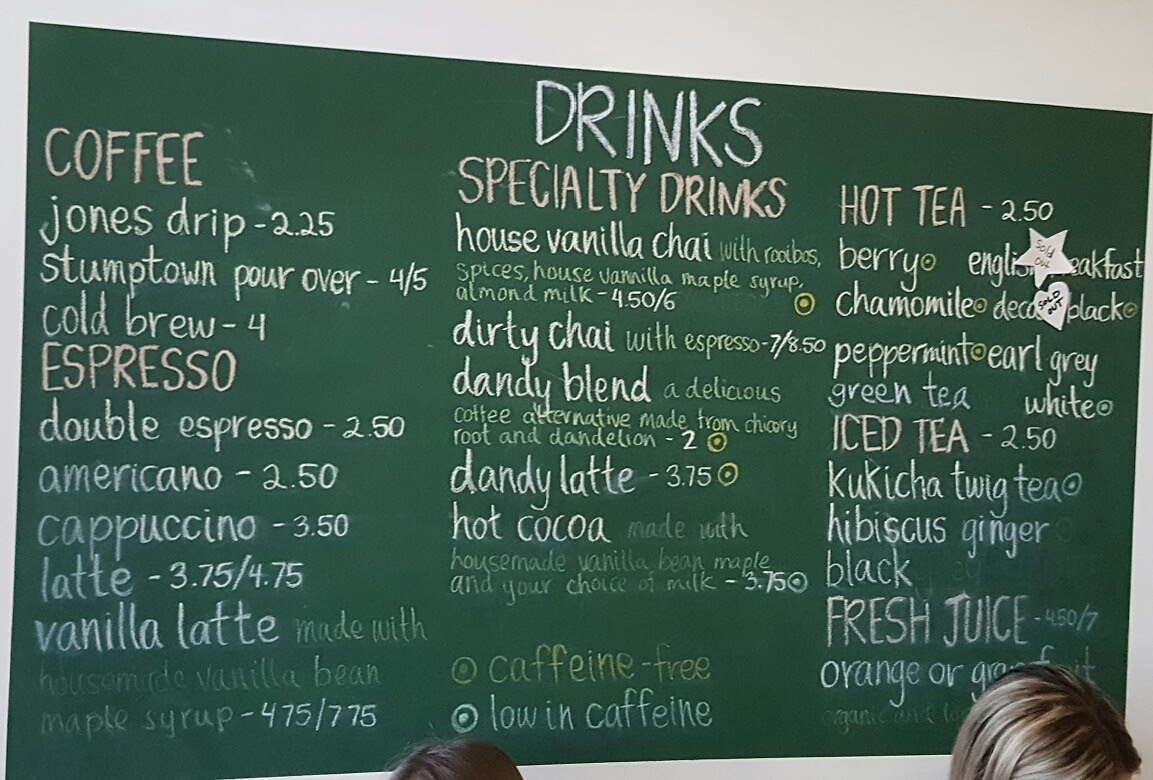 DRINKS
COFFEE
jones drip - 2.25
stumptown pour over - 4/5
cold brew - 4
ESPRESSO
double espresso - 2.50
americano - 2.50
cappuccino - 3.50
latte - 3.75/4.75
vanilla latte made with
housemade vanilla bean
maple syrup - 475/775
SPECIALTY DRINKS
house vanilla chai with rooibos,
spices, house vannilla maple syrup,
almond milk - 4.50/6
dirty chai with espresso - 7/8.50
dandy blend a delicious
coffee alternative made from chicory
root and dandelion - 2
dandy latte - 3.75
hot cocoa made with
housemade vanilla bean maple
and your choice of milk - 3.75
caffeine-free
low in caffeine
HOT TEA - 2.50
berry english Sold out
chamomile SOLD OUT black
peppermint earl grey
green tea white
ICED TEA - 2.50
kukicha twig tea
hibiscus ginger
black
FRESH JUICE - 4.50/7
orange or
organic and